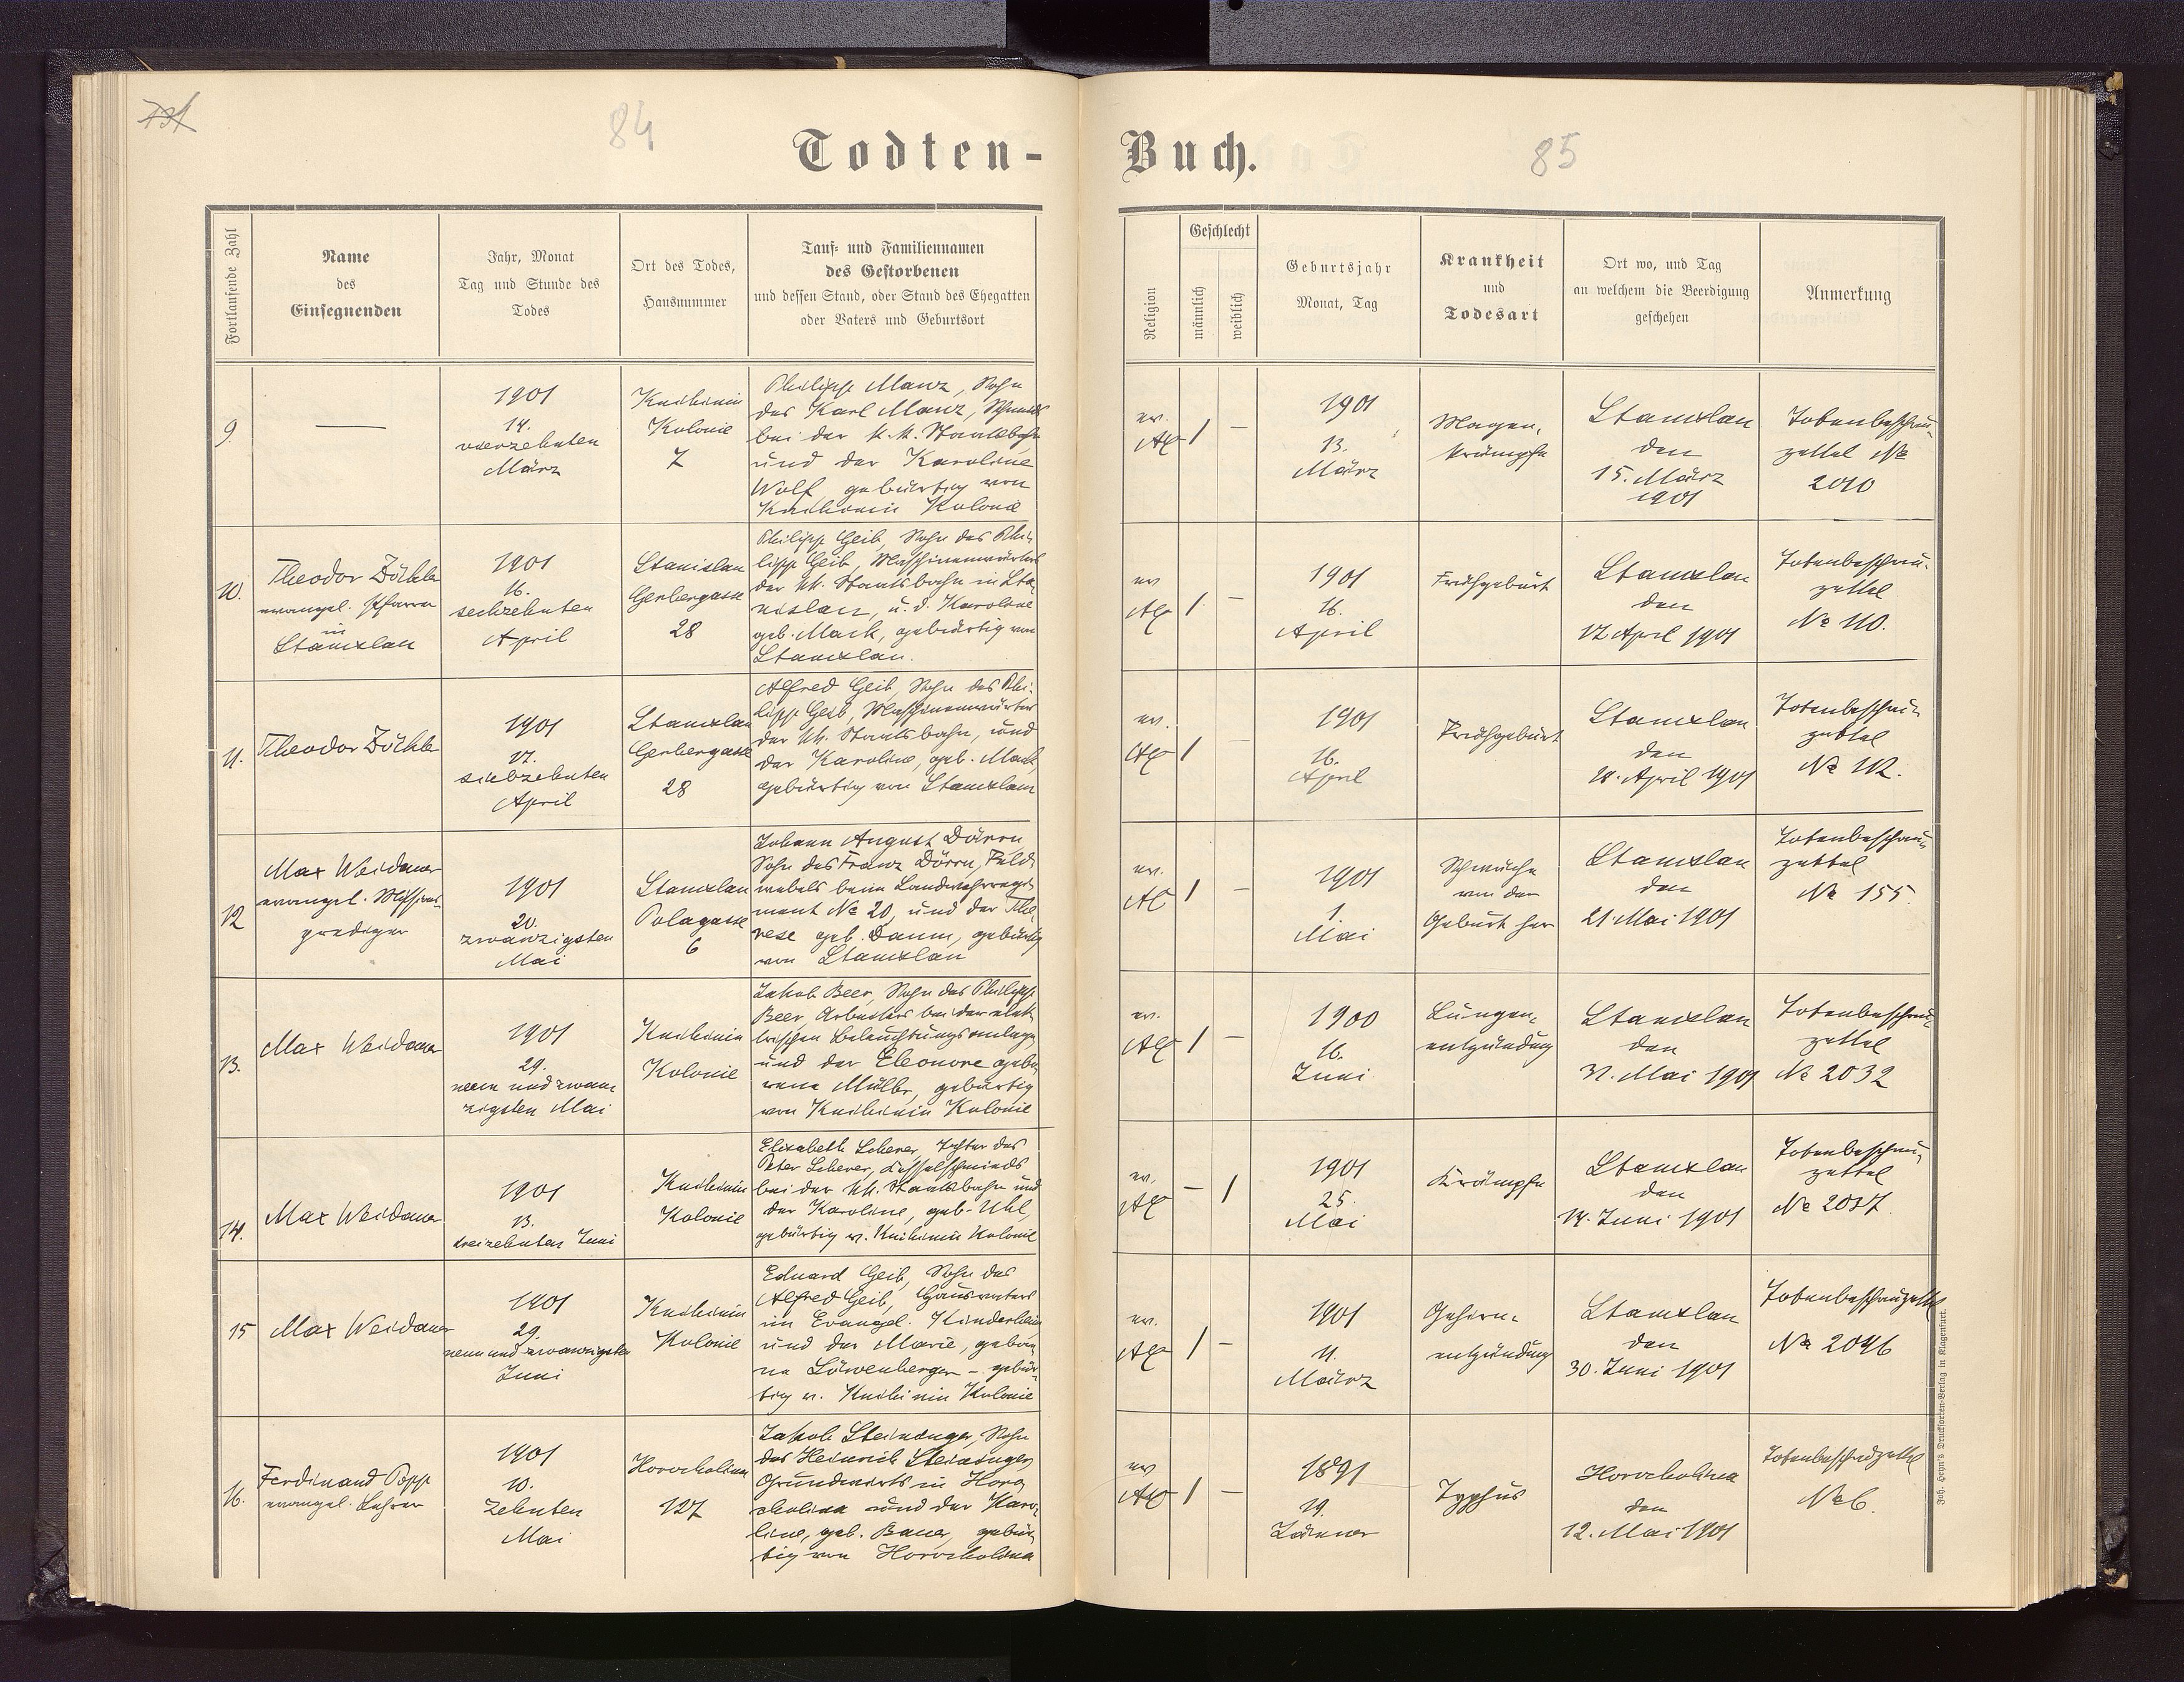 84
Todten-
Fortlaufende Zahl
Name
des
Einsegnenden
Jahr, Monat
Tag und Stunde des
Todes
Ort des Todes,
Hausnummer
Tauf- und Familiennamen
des Gestorbenen
und dessen Stand, oder Stand des Ehegatten
oder Vaters und Geburtsort
9.
1901
14.
vierzehnten
März
Knihinin
Kolonie
7
Philipp Manz, Sohn
des Karl Manz, Schmieds
bei der k. k. Staatsbahn
und der Karoline
Wolf, gebürtig von
Knihinin Kolonie
10.
Theodor Zöckler
evangel. Pfarrer
in
Stanislau
1901
16.
sechzehnten
April
Stanislau
Gerbergasse
28
Philipp Geib, Sohn des Phi-
lipp Geib, Maschinenwärters
der kk. Staatsbahn in Sta-
nislau, u. d. Karoline
geb. Mack, gebürtig von
Stanislau.
11.
Theodor Zöckler
1901
17.
siebzehnten
April
Stanislau
Gerbergasse
28
Alfred Geib, Sohn des Phi-
lipp Geib, Maschinenwärter
der kk. Staatsbahn, und
der Karoline, geb. Mack,
gebürtig von Stanislau
12
Max Weidauer
evangel. Missions-
prediger
1901
20.
zwanzigsten
Mai
Stanislau
Polagasse
6
Johann August Dörrn
Sohn des Franz Dörrn, Feld-
webels beim Landwehrregi-
ment № 20, und der The-
rese geb. Daum, gebürtig
von Stanislau
13.
Max Weidauer
1901
29.
neun und zwan-
zigsten Mai
Knihinin
Kolonie
Jakob Beer, Sohn des Philipp
Beer, Arbeiters bei der elek-
trischen Beleuchtungsanlage
und der Eleonore gebo-
rene Müller, gebürtig
von Knihinin Kolonie
14.
Max Weidauer
1901
13.
dreizehnten Juni
Knihinin
Kolonie
Elisabeth Scherer, Tochter des
Peter Scherer, Kesselschmieds
bei der kk. Staatsbahn und
der Karoline, geb. Uhl,
gebürtig v. Knihinin Kolonie
15
Max Weidauer
1901
29.
neun und zwanzigsten
Juni
Knihinin
Kolonie
Eduard Geib, Sohn des
Alfred Geib, Hausvaters
im Evangel. Kinderheim
und der Marie, gebore-
ne Löwenberger - gebür-
tig v. Knihinin Kolonie
16.
Ferdinand Popp
evangel. Lehrer
1901
10.
Zehnten
Mai
Horocholina
127
Jakob Steininger, Sohn
des Heinrich Steininger,
Grundwirts in Horo-
cholina und der Karo-
line, geb. Bauer, gebür-
tig von Horocholina
Buch.
85
Religion
Geschlecht
männlich
weiblich
Geburtsjahr
Monat, Tag
Krankheit
und
Todesart
Ort wo, und Tag
an welchem die Beerdigung
geschehen
Anmerkung
ev.
AC
1
-
1901
13.
März
Magen-
krämpfe
Stanislau
den
15. März
1901
Totenbeschau-
zettel №
2010
ev.
AC
1
-
1901
16.
April
Frühgeburt
Stanislau
den
17. April 1901
Totenbeschau-
zettel
№ 110.
ev.
AC
1
-
1901
16.
April
Frühgeburt
Stanislau
den
18. April 1901
Totenbeschau-
zettel
№ 112.
ev.
AC
1
-
1901
1.
Mai
Schwäche
von der
Geburt her
Stanislau
den
21. Mai 1901
Totenbeschau-
zettel
№ 155.
ev.
AC
1
-
1900
16.
Juni
Lungen-
entzündung
Stanislau
den
31. Mai 1901
Totenbeschau-
zettel
№ 2032
ev.
AC
-
1
1901
25.
Mai
Krämpfe
Stanislau
den
14. Juni 1901
Totenbeschau-
zettel
№ 2037.
ev.
AC
1
-
1901
11.
März
Gehirn-
entzündung
Stanislau
den
30. Juni 1901
Totenbeschauzettel
№ 2046
ev.
AC
1
-
1891
19.
Jänner
Typhus
Horocholina
den
12. Mai 1901
Totenbeschauzettel
№ 6.
Joh. Heyn's Drucksorten-Verlag in Klagenfurt.